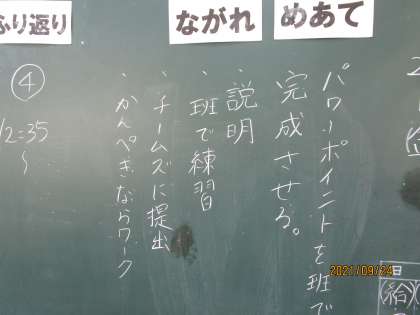 めあて
パワーポイントを班で
完成させる。
ながれ
・説明
・班で練習
・チームズに提出
・かんぺきならワーク
ふり返り
④
12:35
～
日
給
2021/09/24